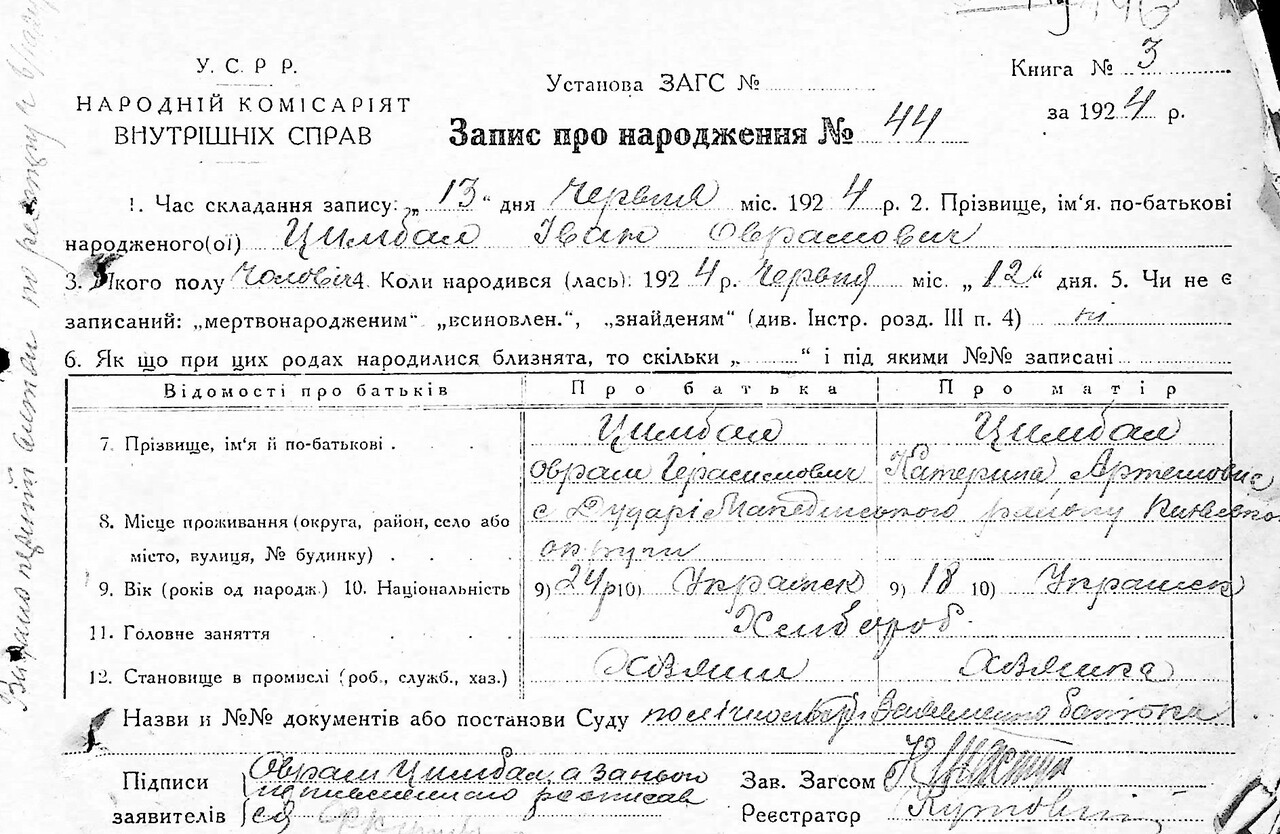 У. С. Р Р.
НАРОДНІЙ КОМІСАРІЯТ
ВНУТРІШНІХ СПРАВ
Установа ЗАГС №
Книга № 3
за 1924 р.
Запис про народження № 44
1. Час складання запису: „ 13 “ дня червня міс. 1924 р. 2. Прізвище, ім'я. по-батькові
народженого(ої) Цимбал Іван Оврамович
3. Якого полу чоловіч 4. Коли народився (лась): 1924 р. червня міс. „ 12 “ дня. 5. Чи не є
записаний: „мертвонародженим“ „всиновлен.“, „знайденям“ (див. Інстр. розд. III п. 4) ні
6. Як що при цих родах народилися близнята, то скільки „ “ і під якими №№ записані
Відомості про батьків Про батька Про матір
7. Прізвище, ім'я й по-батькові . Цимбал Цимбал
Оврам Герасимович Катерина Артемовна
8. Місце проживання (округа, район, село або с Дударі району
місто, вулиця, № будинку) . округи
9. Вік (років од народж.) 10. Національність 9) 24 р 10) Українск 9) 18 10) Українск
11. Головне заняття Хлибороб
12. Становище в промислі (роб., служб., хаз.) Хозяин Хозяика
Назви и №№ документів або постанови Суду батька
Підписи Оврам Цимбал, а за нього
заявителів
Зав. Загсом
Реєстратор